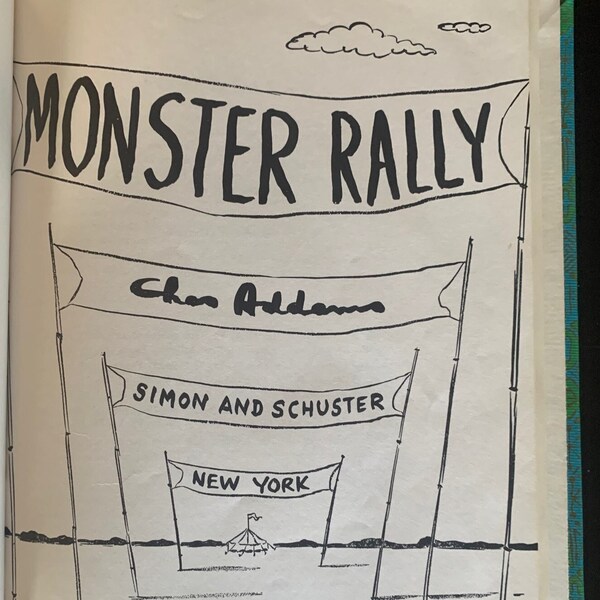 MONSTER RALLY
Chas Addams
SIMON AND SCHUSTER
NEW YORK